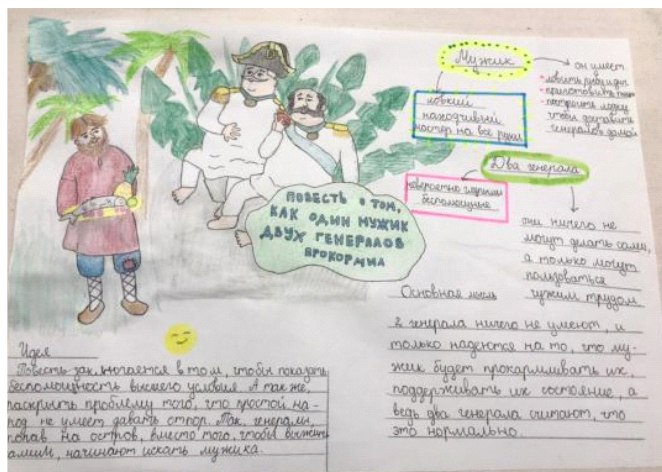 Мужик
он умеет
ловить рыбу и дичь
приготовить
построить лодку
чтобы доставить
генералов домой
ловкий
находчивый
мастер на все руки
Два генерала
невероятно глупыми
беспомощные
они ничего не
могут делать сами,
а только могут
пользоваться
чужим трудом
ПОВЕСТЬ о том,
КАК ОДИН МУЖИК
ДВУХ ГЕНЕРАЛОВ
ПРОКОРМИЛ
Основная мысль
2 генерала ничего не умеют, и
только надеются на то, что му-
жик будет прокармливать их,
поддерживать их состояние, а
ведь два генерала считают, что
это нормально.
Идея
Повесть заключается в том, чтобы показать
беспомощность высшего условия. А так же,
раскрыть проблему того, что простой на-
род не умеет давать отпор. Так, генералы,
попав на остров, вместо того, чтобы выжить
самим, начинают искать мужика.